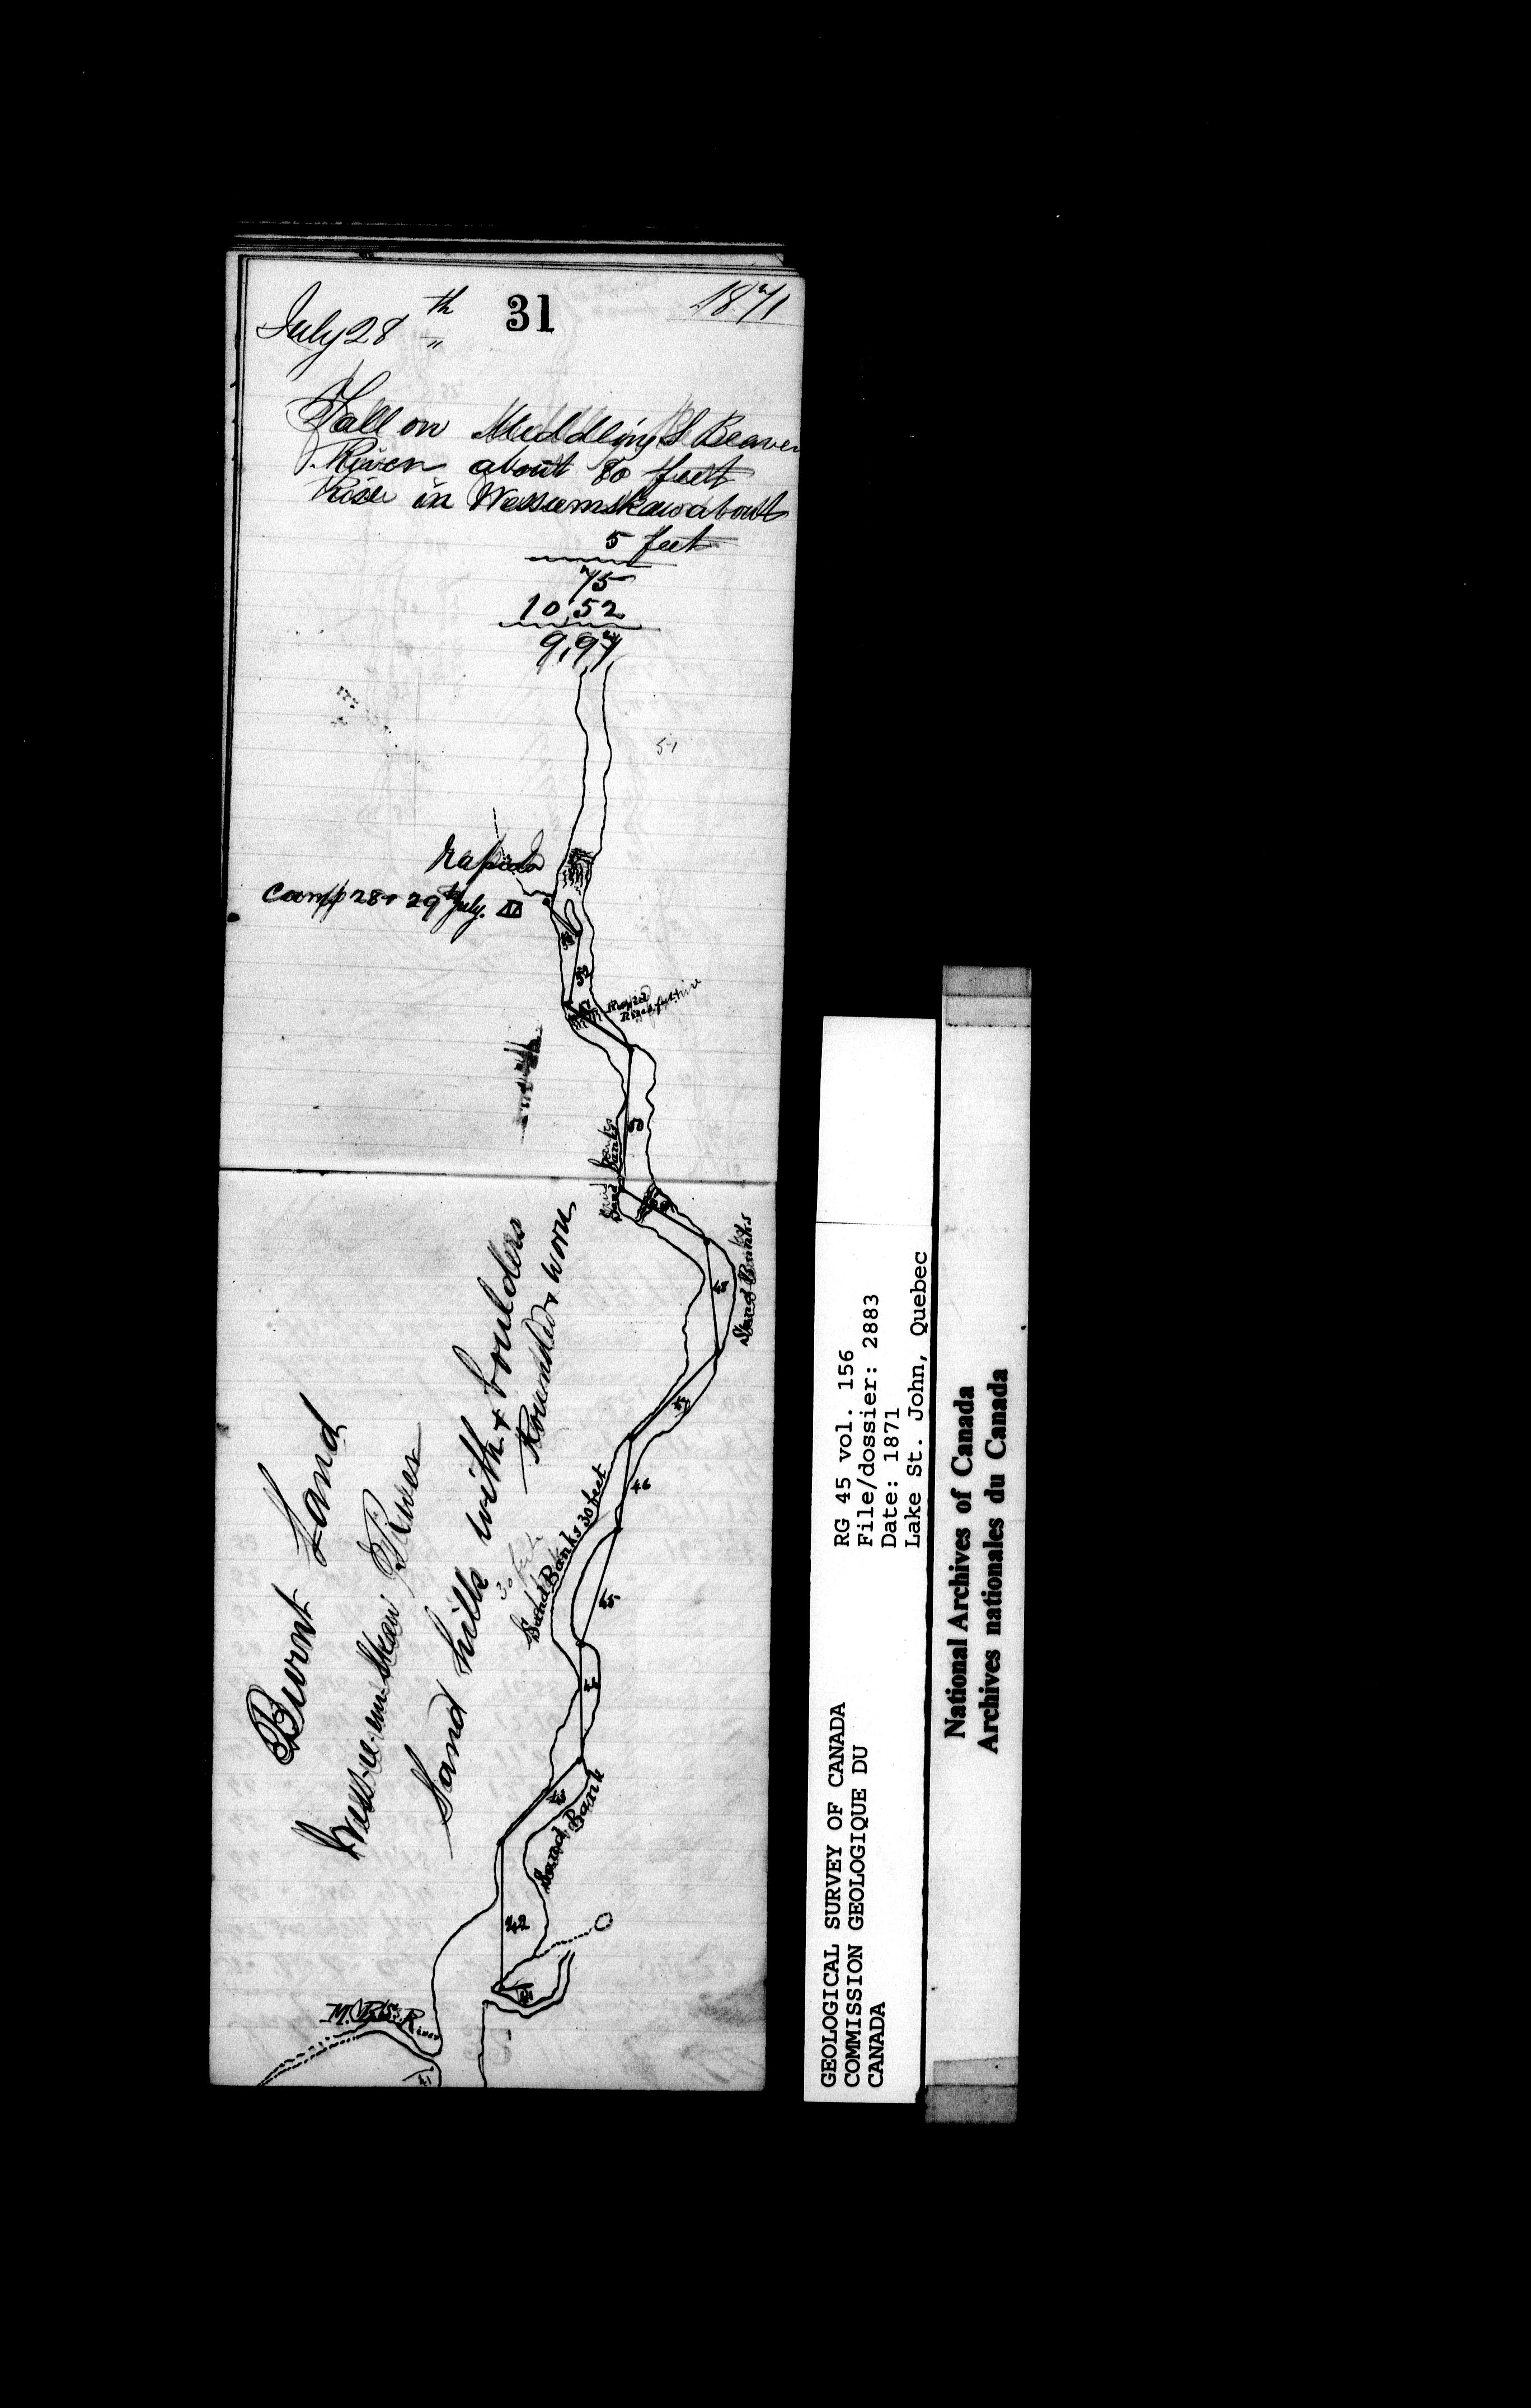 July 28th 31 1871
Fall on Middling S Beaver
River about 80 feet
Rise in Wessumskaw about
5 feet
75
10,52
9,97
51
rapids
Camp 28 & 29th July.
53
52
51
Rapid
Rise feet
50
Sand banks
49
48
Sand Banks
47
46
Sand Banks 30 feet
30 feet
45
44
43
Sand Bank
42
41
Burnt Land
River
Sand hills with & boulders
Rounded & worn
M. River
GEOLOGICAL SURVEY OF CANADA
COMMISSION GEOLOGIQUE DU
CANADA
RG 45 vol. 156
File/dossier: 2883
Date: 1871
Lake St. John, Quebec
National Archives of Canada
Archives nationales du Canada